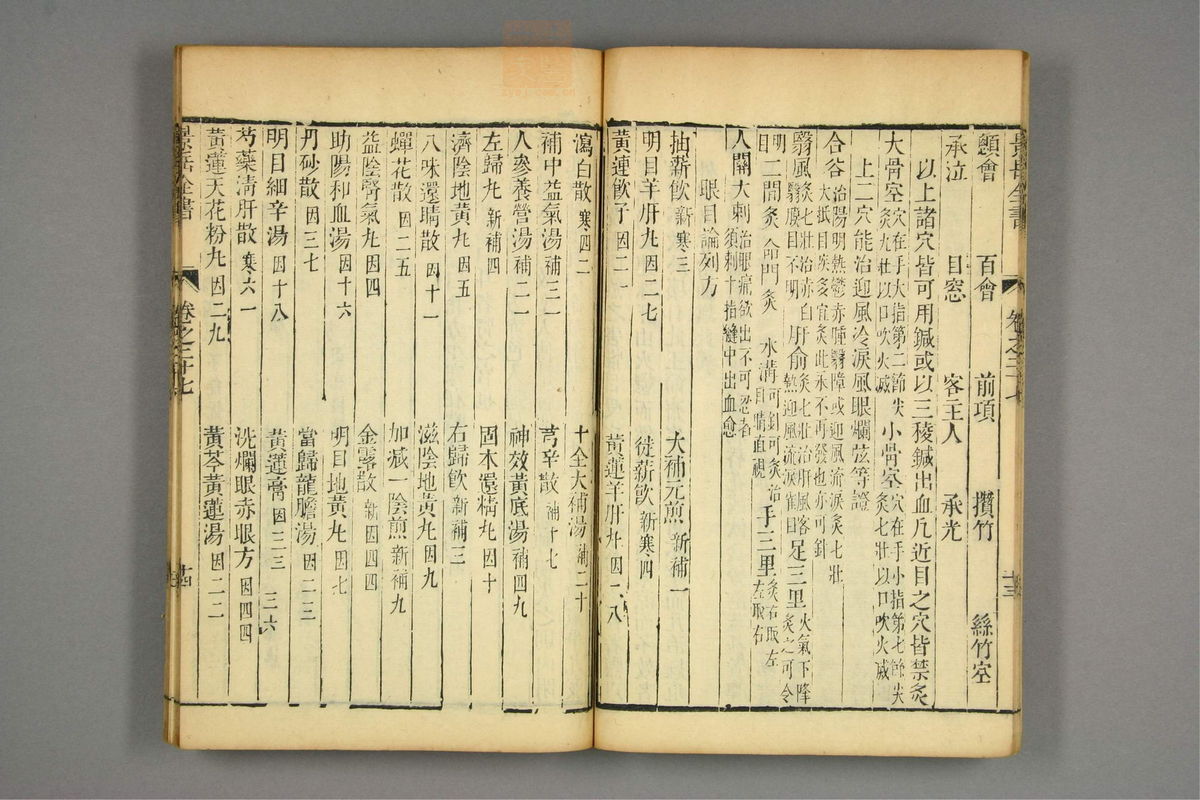 顖會 百會 前項 攢竹 絲竹空
承泣 目窓 客主人 承光
以上諸穴皆可用鍼或以三稜鍼出血凡近目之穴皆禁灸
大骨空 穴在手大指第二節尖灸九壯以口吹火滅 小骨空 穴在手小指第七節尖灸七壯以口吹火滅
上二穴能治迎風冷淚風眼爛弦等證
合谷 治陽明熱鬱赤腫翳障或迎風流淚灸七壯大抵目疾多宜灸此永不再發也亦可針
翳風 灸七壯治赤白翳膜目不明 肝俞 灸七壯治肝風客熱迎風流淚雀目 足三里 火氣下降灸之可令目明
二間 灸 命門 灸 水溝 可針可灸治目睛直視 手三里 灸右取左左取右
人關大刺 治眼疵欲出不可忍者須刺十指縫中出血愈
眼目論列方
抽薪飲 新寒三 大補元煎 新補一
明目羊肝丸 因二七 徙薪飲 新寒四
黃連飲子 因二一 黃蓮羊肝丸 因二八
瀉白散 寒四二 十全大補湯 補二十
補中益氣湯 補三一 芎辛散 補十七
人參養營湯 補二一 神效黃底湯 補四九
左歸丸 新補四 固本還精丸 因十
濟陰地黃丸 因五 右歸飲 新補三
八味還睛散 因十一 滋陰地黃丸 因九
蟬花散 因二五 加減一陰煎 新補九
益陰腎氣丸 因四 金零散 新因四四
助陽和血湯 因十六 明目地黃丸 因七
丹砂散 因三七 當歸龍膽湯 因二三
明目細辛湯 因十八 黃蓮膏 因三三 三六
芍藥清肝散 寒六一 洗爛眼赤眼方 因四四
黃蓮天花粉丸 因二九 黃芩黃蓮湯 因二二
景岳全書 卷之二十七 十四